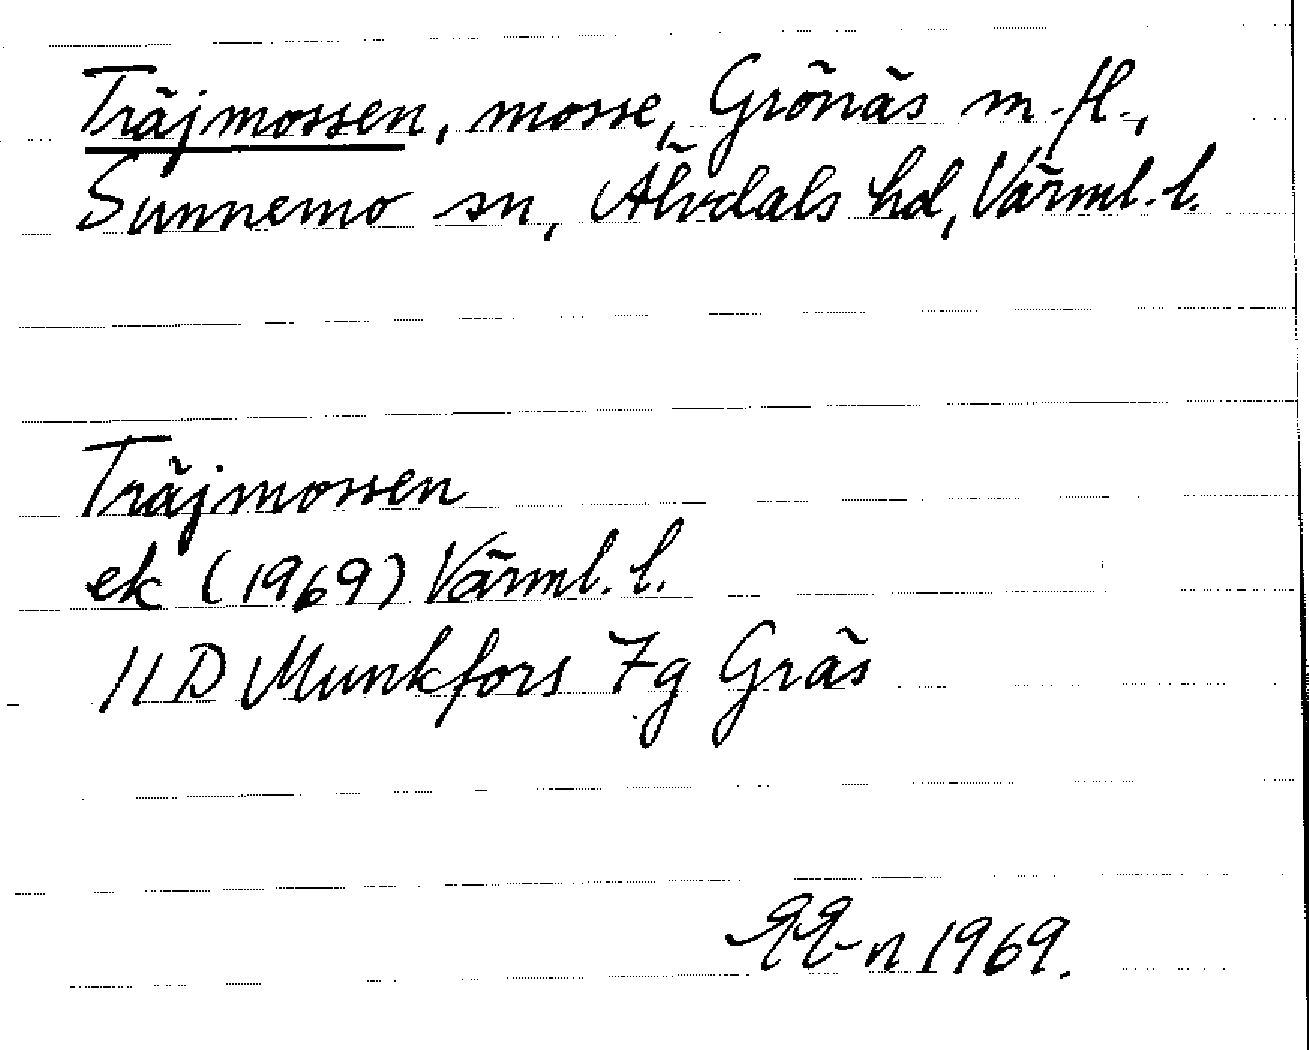 Träjmossen, mosse, Grönäs m.fl.,
Sunnemo sn, Älvdals hd, Värml. l.
Träjmossen
ek (1969) Värml. l.
11D Munkfors 7g Gräs
1969.